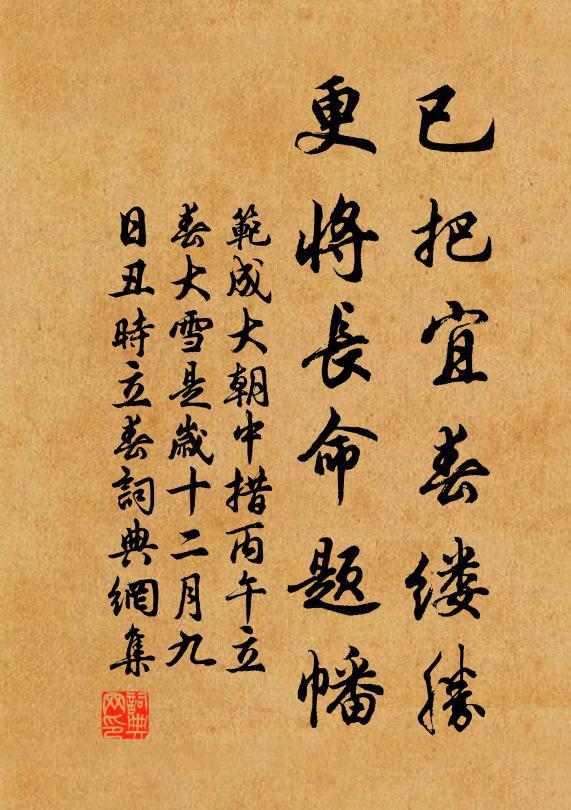 已把宜春缕勝
更将長命题幡
範成大朝中措丙午立
春大雪是歲十二月九
日丑時立春詞典網集
詞典网印